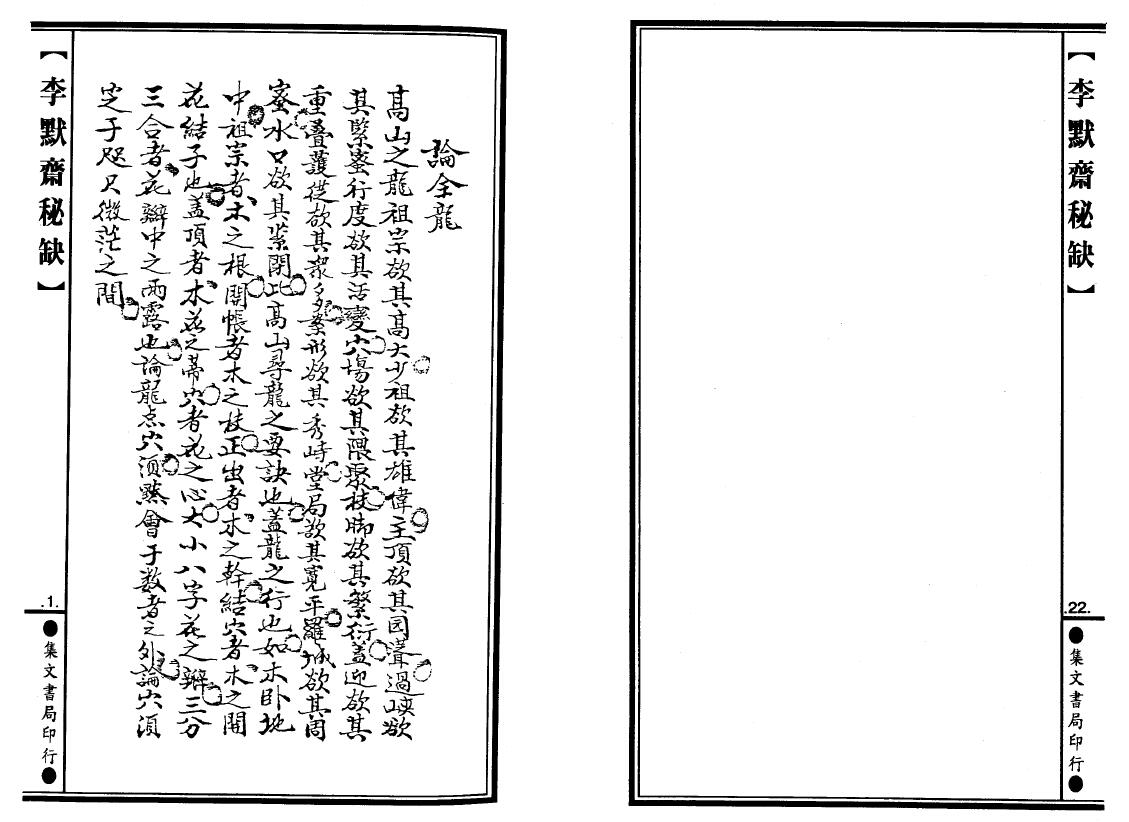 【李默齋秘缺】
.22.
●集文書局印行●
論全龍
高山之龍祖宗欲其高大少祖欲其雄偉主頂欲其园聳過峽欲
其緊蜜行度欲其活變穴場欲其隈聚枝脚欲其繁衍蓋迎欲其
重叠護從欲其衆多案形欲其秀峙堂局欲其寬平羅城欲其周
蜜水口欲其紧閉此高山尋龍之要訣也盖龍之行也如木卧地
中祖宗者木之根開帳者木之枝正出者木之幹結穴者木之開
花結子也盖頂者木花之蒂穴者花之心大小八字花之辧三分
三合者花辧中之雨露也論龍点穴須黙會于数者之外論穴須
定于咫尺微茫之間
【李默齋秘缺】
.1.
●集文書局印行●